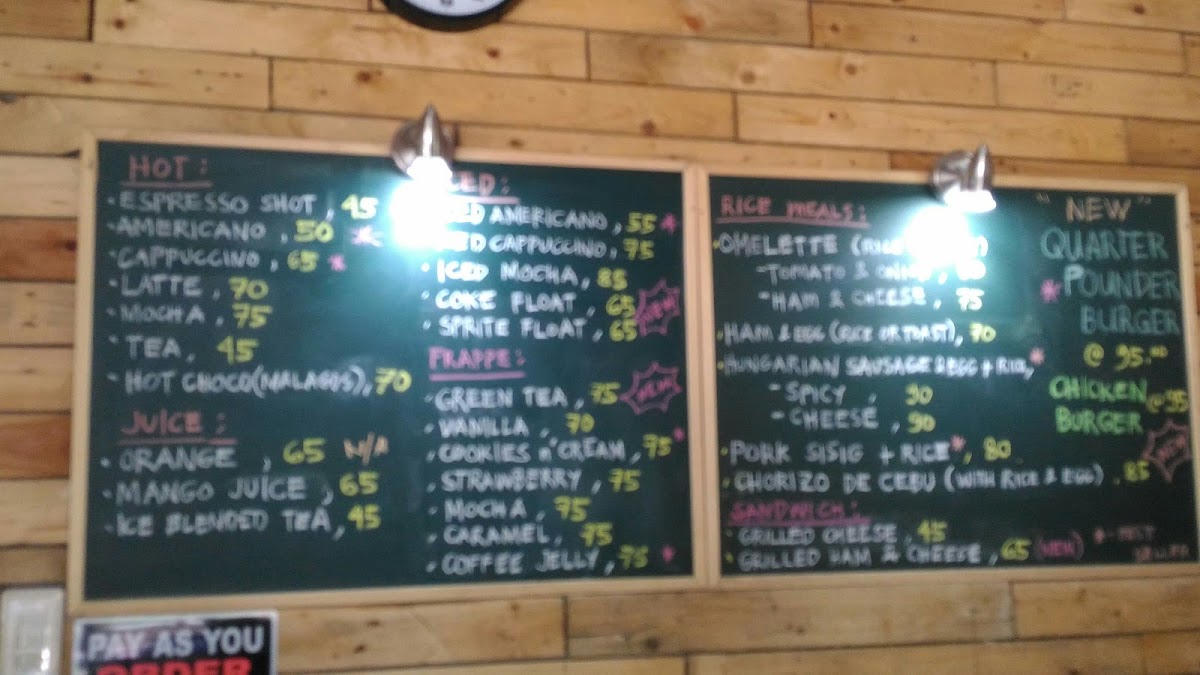 HOT:
· ESPRESSO SHOT, 45
· AMERICANO, 50 *
· CAPPUCCINO, 65 *
· LATTE, 70
· MOCHA, 75
- TEA, 45
- HOT CHOCO(MALAGOS), 70
JUICE:
· ORANGE, 65 N/A
· MANGO JUICE, 65
· ICE BLENDED TEA, 45
ICED:
ICED AMERICANO, 55 *
ICED CAPPUCCINO, 75
· ICED MOCHA, 85
· COKE FLOAT, 65
· SPRITE FLOAT, 65
NEW
FRAPPE:
· GREEN TEA, 75 NEW
· VANILLA, 70
· COOKIES n' CREAM, 75 *
· STRAWBERRY, 75
· MOCHA, 75
· CARAMEL, 75
· COFFEE JELLY, 75 *
RICE MEALS:
· OMELETTE
- TOMATO &
- HAM & CHEESE, 75
· HAM & EGG (RICE OR TOAST), 70
· HUNGARIAN SAUSAGE & EGG + RICE, *
- SPICY, 90
- CHEESE, 90
· PORK SISIG + RICE *, 80
· CHORIZO DE CEBU (WITH RICE & EGG). 85
SANDWICH:
· GRILLED CHEESE, 45
· GRILLED HAM & CHEESE, 65 (NEW)
"NEW"
QUARTER
* POUNDER
BURGER
@ 95.00
CHICKEN @95
BURGER
NEW
* - BEST
SELLER
PAY AS YOU
ORDER